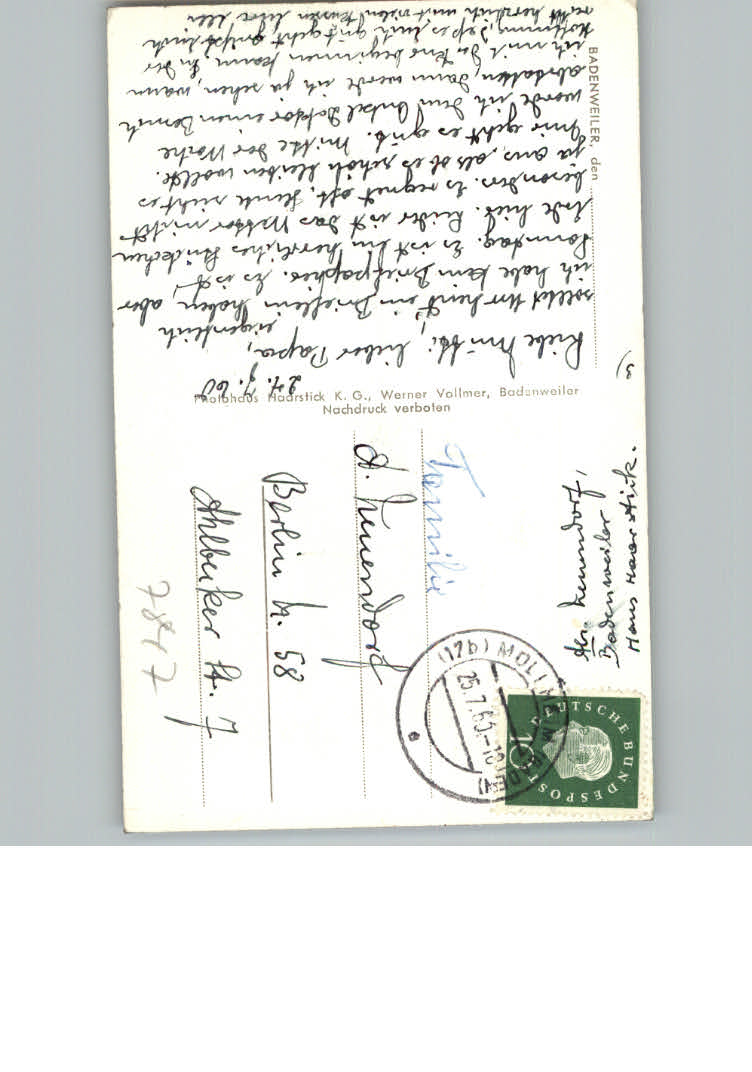 BADENWEILER, den
24. 7. 60
Liebe Mutti, lieber Papa,
eigentlich
solltet Ihr heint ein Brieflein haben, aber
ich habe kein Briefpapier. Es ist
Sonntag. Es ist ein herrliches Stückchen
Erde hier. Leider ist das Wetter nicht
besonders. Es regnet oft. Heute sieht es
ja aus, als ob es schön bleiben wollte.
Mir geht es gut. Mitte der Woche
werde ich dem Onkel Doktor einen Besuch
abstatten, dann werde ich ja sehen, wann
ich mit der Kur beginnen kann. In der
Hoffnung, daß es Euch gut geht grüßt Euch
recht herzlich mit vielen Küssen Eure
Photohaus Haarstick K. G., Werner Vollmer, Badenweiler
Nachdruck verboten
3)
Familie
A. Neuendorf
Berlin N. 58
Ahlbecker Str. 7
7847
Abs. Neuendorf,
Badenweiler
Haus Haarstick.
(17b) MÜLLHEIM (BADEN)
25.7.60.-18
e
DEUTSCHE BUNDESPOST
10